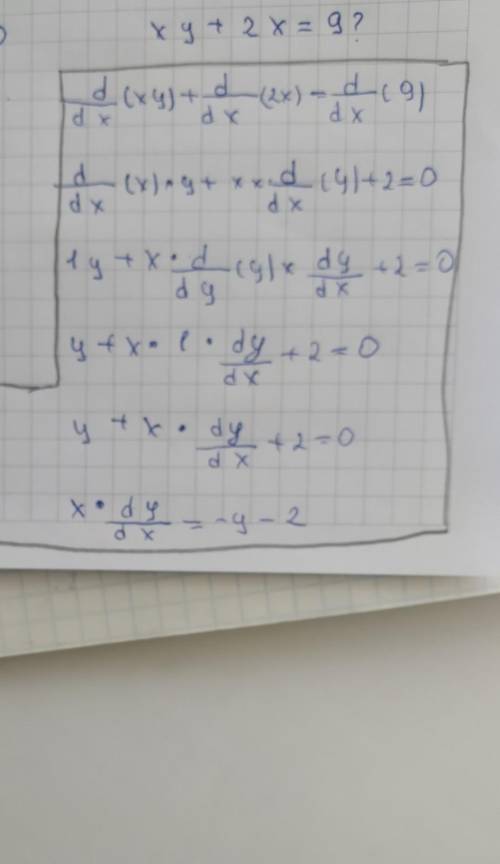 xy + 2x = 9?
d/dx (xy) + d/dx (2x) = d/dx (9)
d/dx (x) • y + x × d/dx (y) + 2 = 0
1y + x • d/dy (y) × dy/dx + 2 = 0
y + x • 1 • dy/dx + 2 = 0
y + x • dy/dx + 2 = 0
x • dy/dx = -y - 2